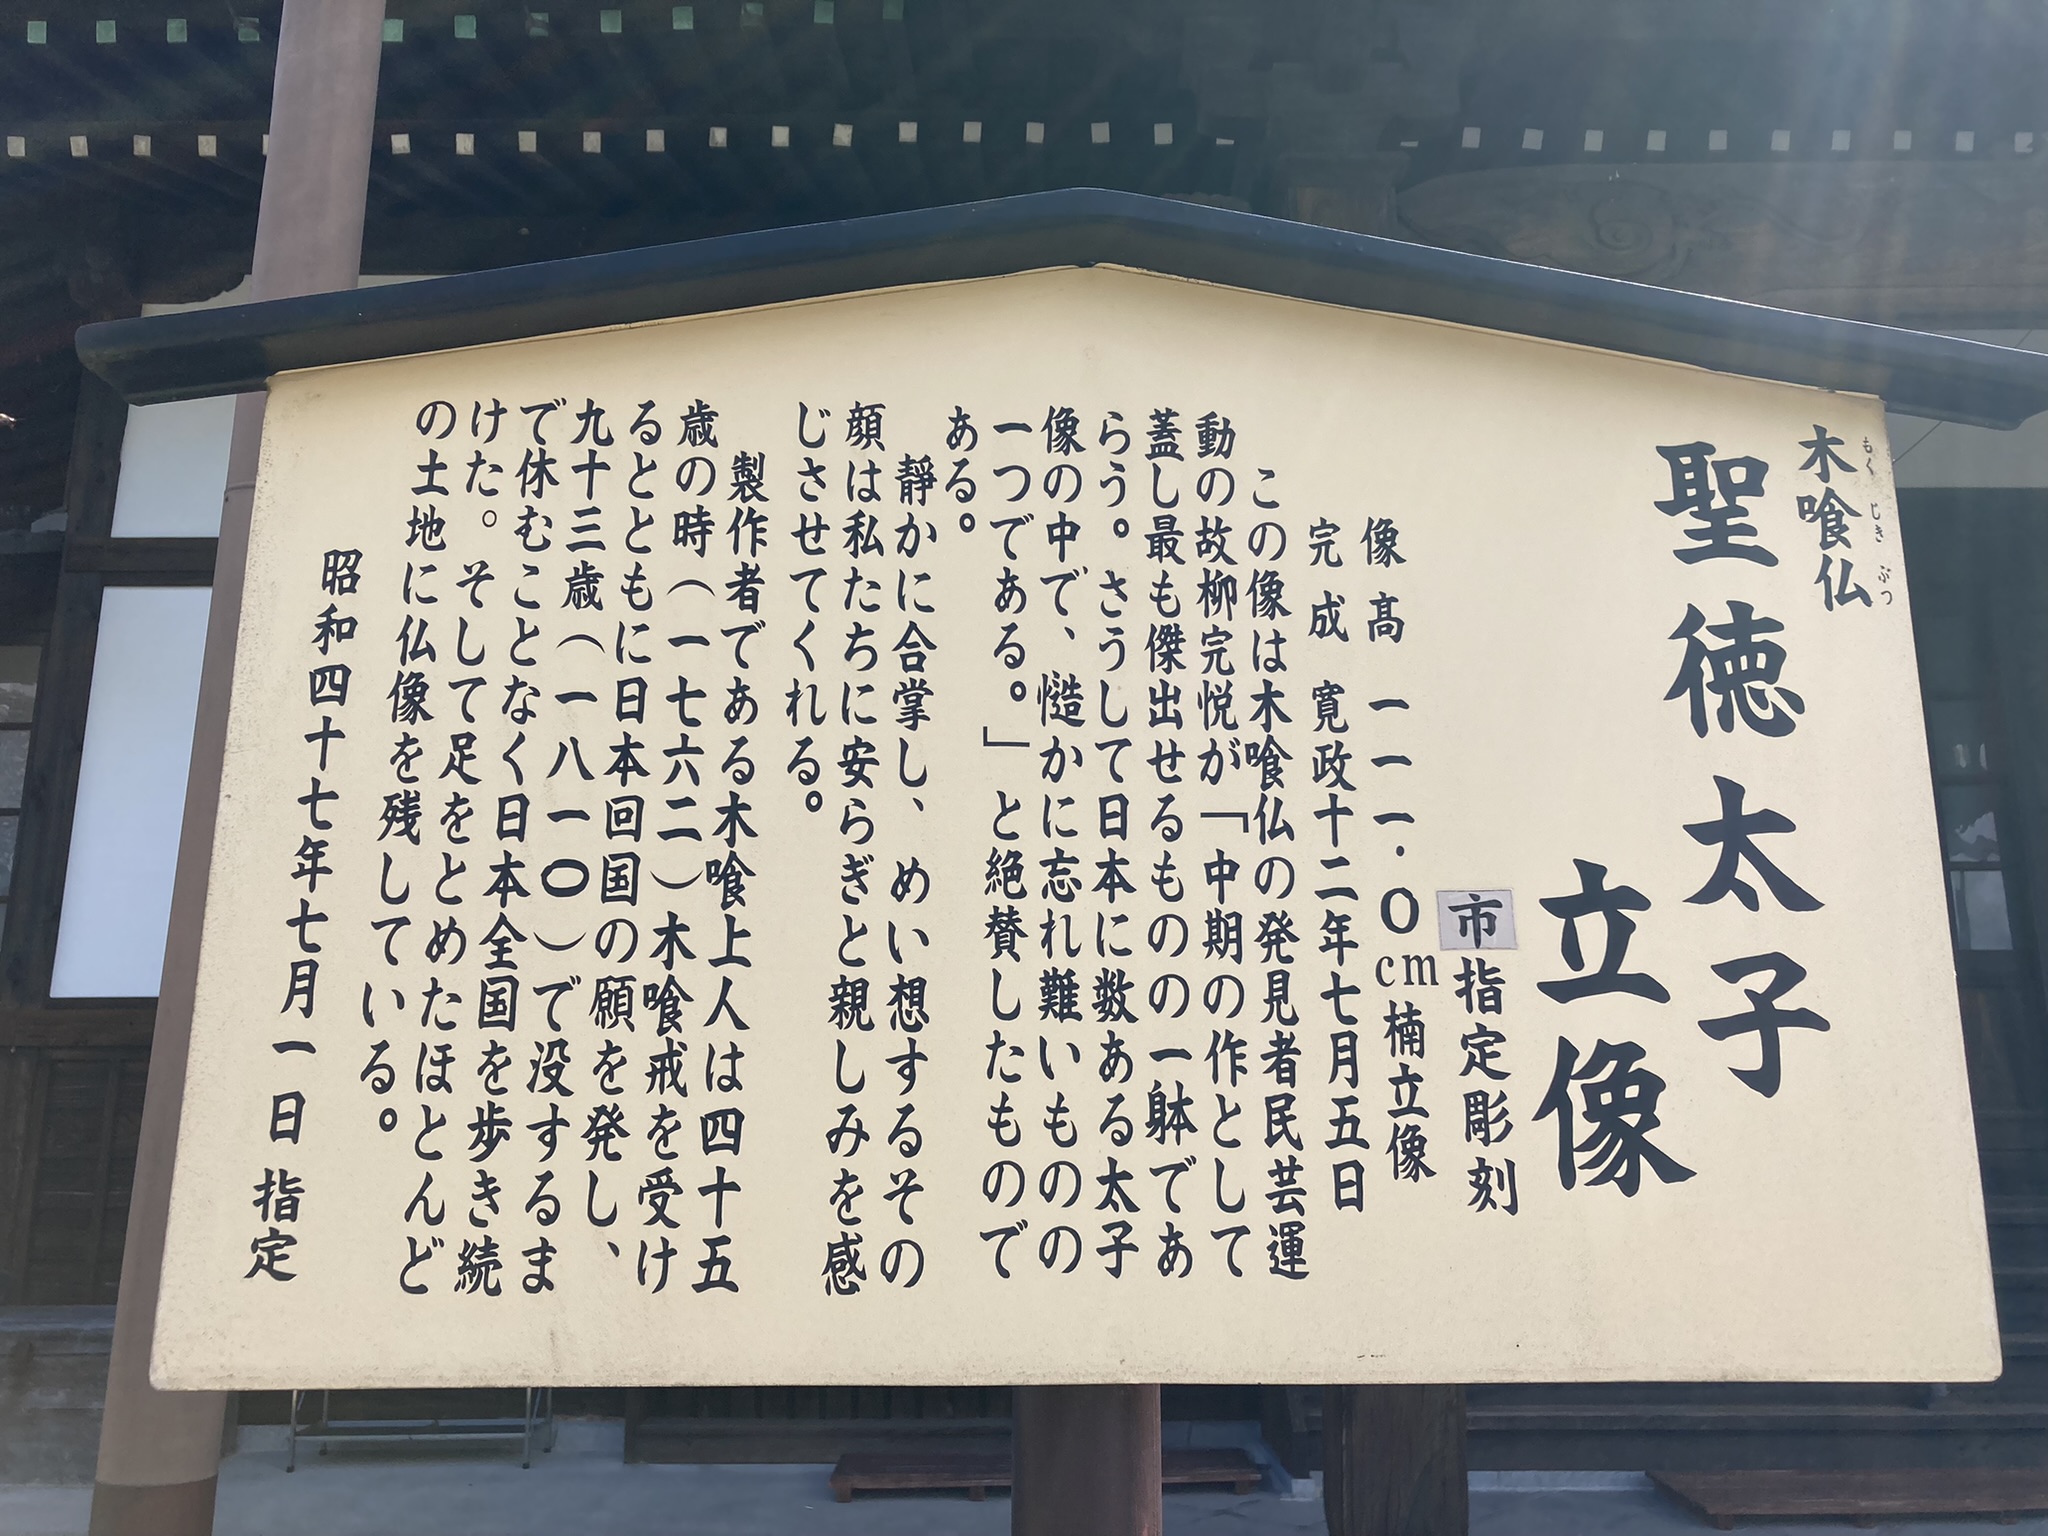 木喰仏
もくじきぶつ
聖徳太子
立像
市指定彫刻
像高 一一一.〇cm楠立像
完成 寛政十二年七月五日
この像は木喰仏の発見者民芸運
動の故柳完悦が「中期の作として
蓋し最も傑出せるものの一躰であ
らう。さうして日本に数ある太子
像の中で、慥かに忘れ難いものの
一つである。」と絶賛したもので
ある。
静かに合掌し、めい想するその
顔は私たちに安らぎと親しみを感
じさせてくれる。
製作者である木喰上人は四十五
歳の時(一七六二)木喰戒を受け
るとともに日本回国の願を発し、
九十三歳(一八一〇)で没するま
で休むことなく日本全国を歩き続
けた。そして足をとめたほとんど
の土地に仏像を残している。
昭和四十七年七月一日 指定